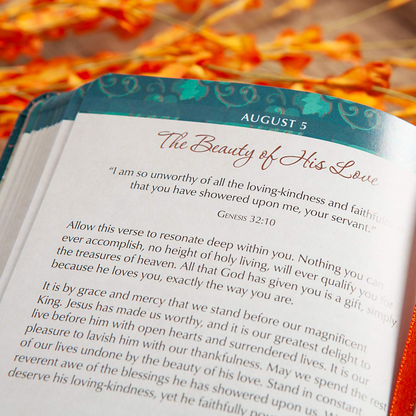 AUGUST 5
The Beauty of His Love
"I am so unworthy of all the loving-kindness and faithfulness
that you have showered upon me, your servant."
GENESIS 32:10
Allow this verse to resonate deep within you. Nothing you can
ever accomplish, no height of holy living, will ever qualify you for
the treasures of heaven. All that God has given you is a gift, simply
because he loves you, exactly the way you are.
It is by grace and mercy that we stand before our magnificent
King. Jesus has made us worthy, and it is our greatest delight to
live before him with open hearts and surrendered lives. It is our
pleasure to lavish him with our thankfulness. May we spend the rest
of our lives undone by the beauty of his love. Stand in constant
reverent awe of the blessings he has showered upon us. We
deserve his loving-kindness, yet he faithfully pours